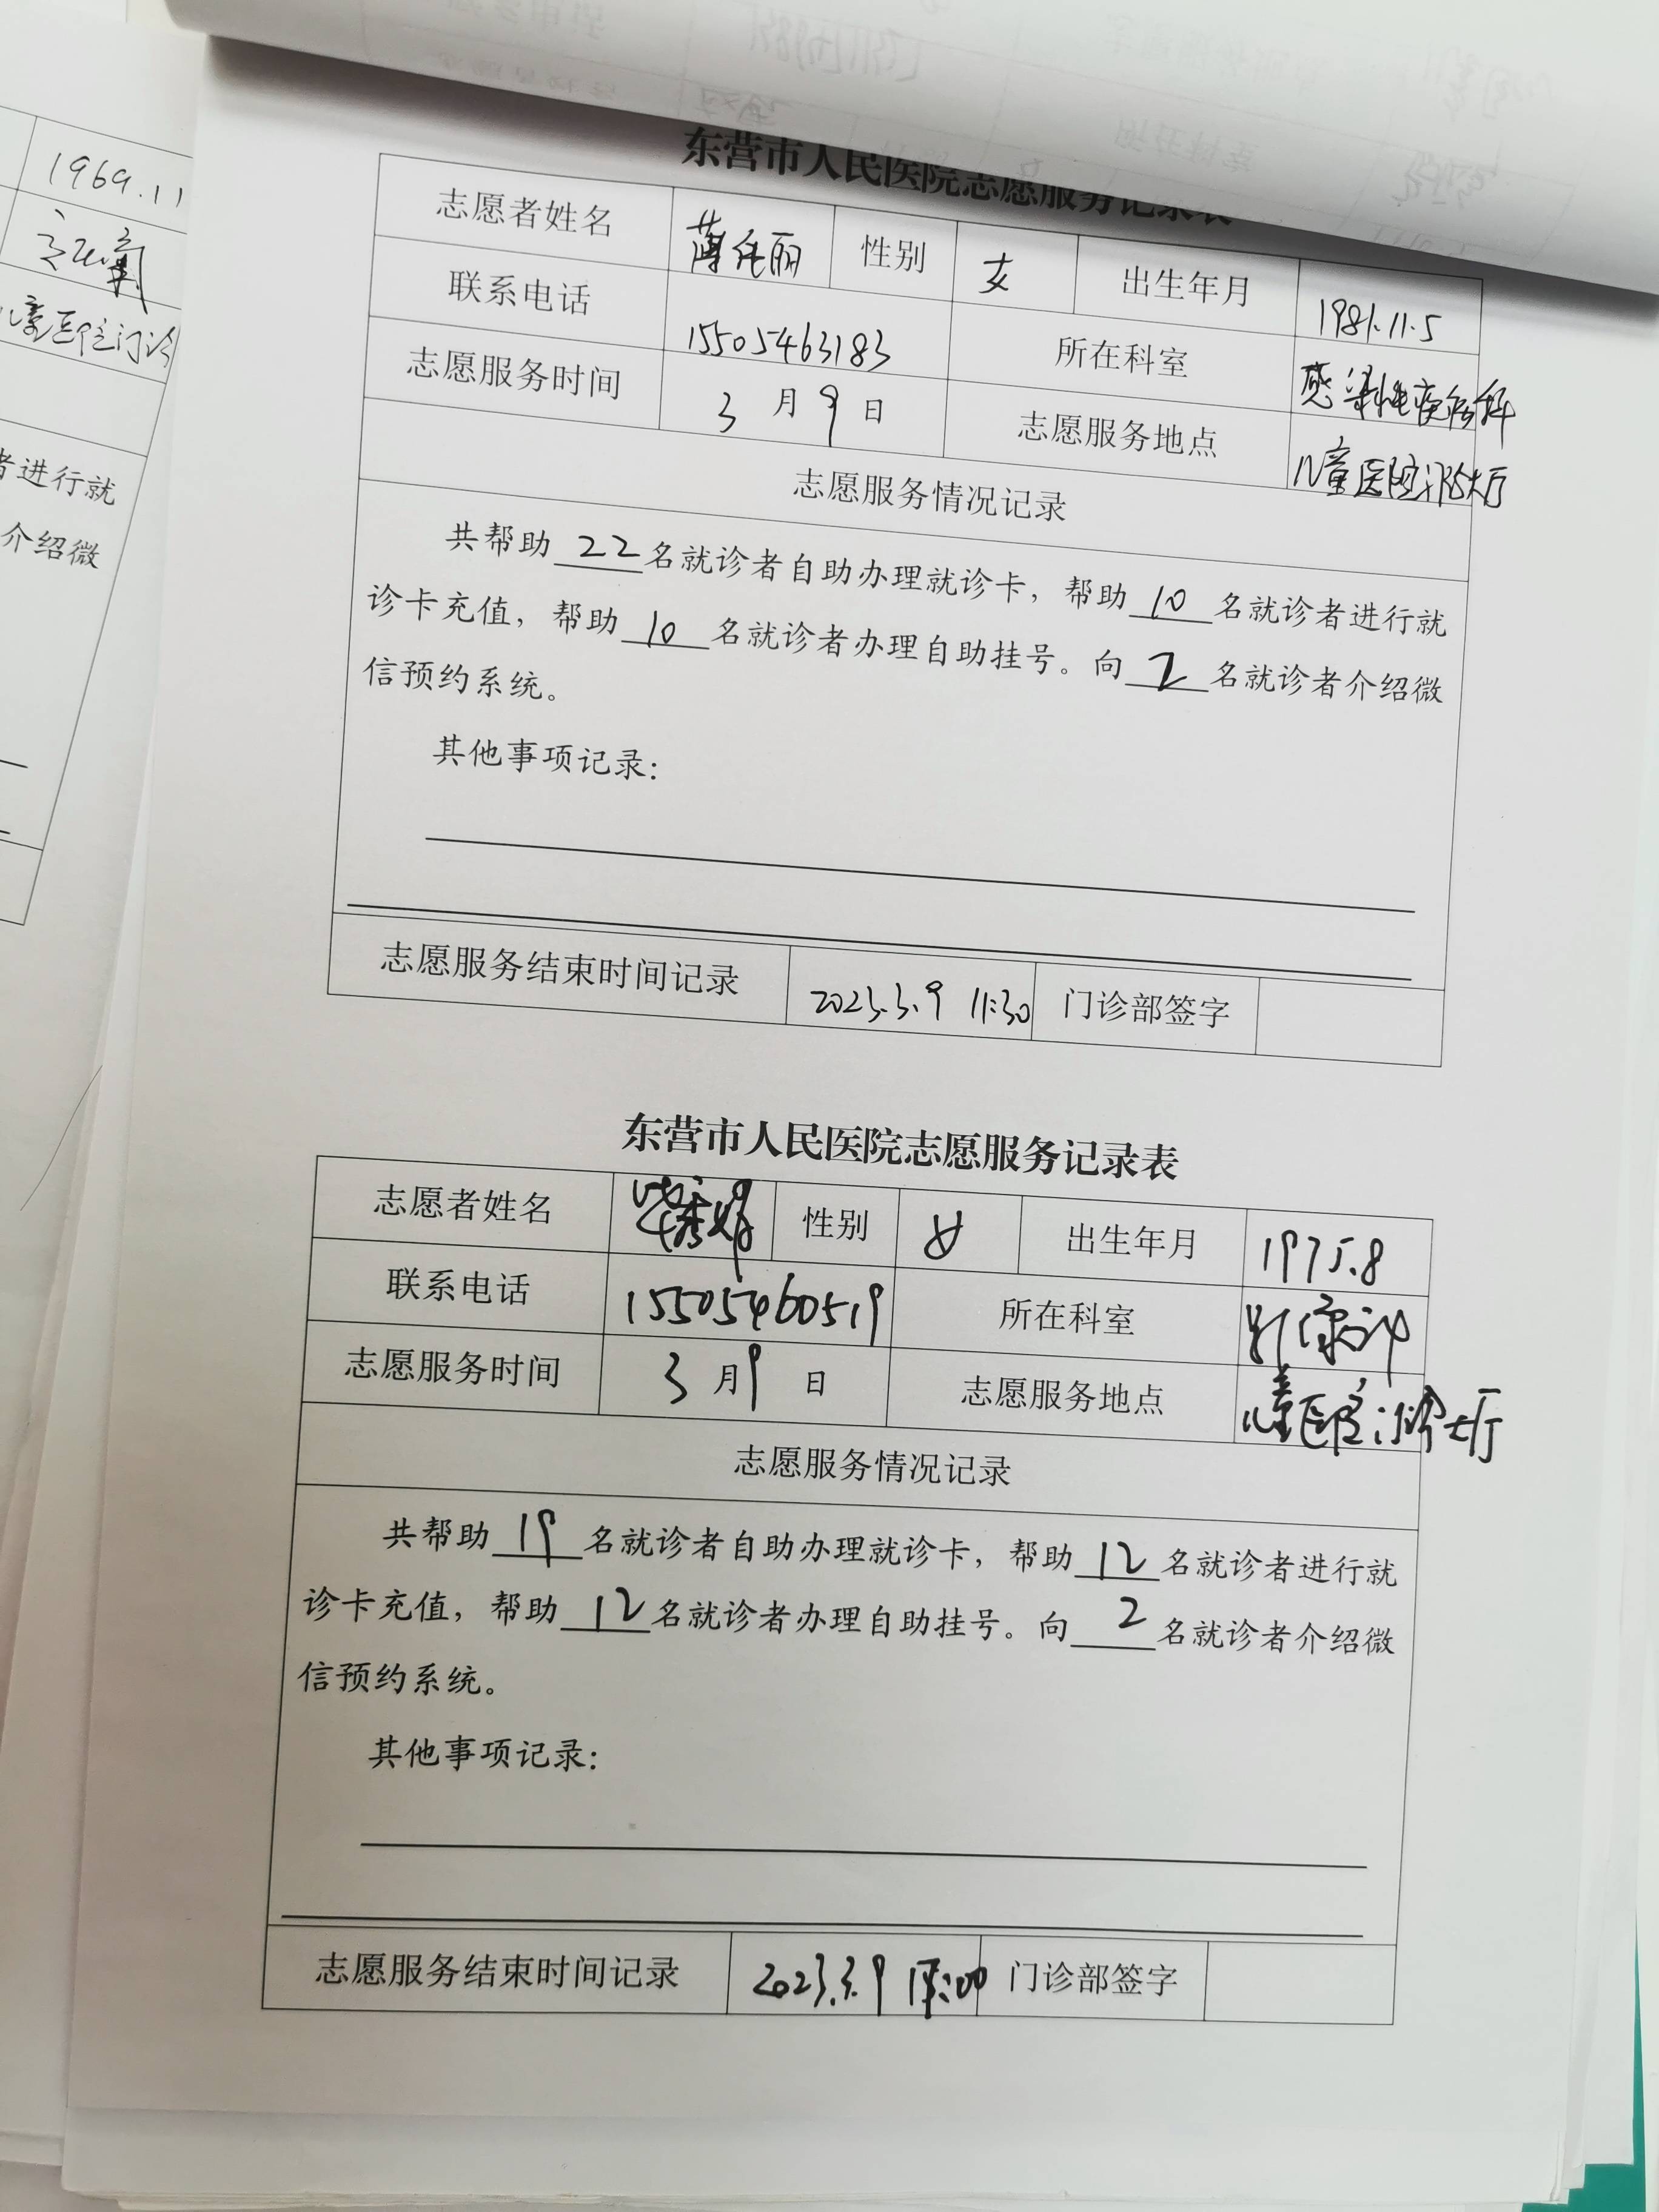 1969.11
儿童医院门诊
者进行就
介绍微
东营市人民医院志愿服务记录表
志愿者姓名 薄纯丽 性别 女 出生年月 1981.11.5
联系电话 15505463183 所在科室 感染性疾病科
志愿服务时间 3月9日 志愿服务地点 儿童医院门诊大厅
志愿服务情况记录
共帮助22名就诊者自助办理就诊卡，帮助10名就诊者进行就
诊卡充值，帮助10名就诊者办理自助挂号。向2名就诊者介绍微
信预约系统。
其他事项记录：
志愿服务结束时间记录 2023.3.9 11:30 门诊部签字
东营市人民医院志愿服务记录表
志愿者姓名 性别 女 出生年月 1975.8
联系电话 15505460519 所在科室
志愿服务时间 3月9日 志愿服务地点 儿童医院门诊大厅
志愿服务情况记录
共帮助19名就诊者自助办理就诊卡，帮助12名就诊者进行就
诊卡充值，帮助12名就诊者办理自助挂号。向2名就诊者介绍微
信预约系统。
其他事项记录：
志愿服务结束时间记录 2023.3.9 门诊部签字